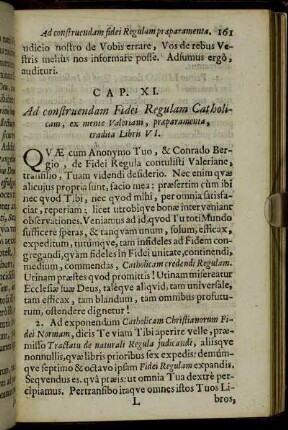 Ad construendam fidei Regulam præparamenta. 161
judicio nostro de Vobis errare, Vos de rebus Ve-
stris meliùs nos informare posse. Adsumus ergò,
audituri.
CAP. XI.
Ad construendam Fidei Regulam Catholi-
cam, ex mente Valeriani, præparamenta,
tradita Libris VI.
QVÆ cum Anonymo Tuo, & Conrado Ber-
gio, de Fidei Regula contulisti Valeriane,
transilio, Tuam videndi desiderio. Nec enim quæ
alicujus propria sunt, facio mea: præsertim cùm ibi
nec quod Tibi, nec quod mihi, per omnia satisfa-
ciat, reperiam: licet utrobique bonæ interveniant
observationes. Veniamus ad id, quod Tu toti Mundo
sufficere speras, & tanquam unum, solum, efficax,
expeditum, tutumque, tam infideles ad Fidem con-
gregandi, quàm fideles in Fidei unitate, continendi,
medium, commendas, Catholicam credendi Regulam.
Utinam præstes quod promittis! Utinam misereatur
Ecclesiæ suæ Deus, taléque aliquid, tam universale,
tam efficax, tam blandum, tam omnibus profutu-
rum, ostendere dignetur!
2. Ad exponendum Catholicam Christianorum Fi-
dei Normam, dicis Te viam Tibi aperire velle, præ-
misso Tractatu de naturali Regula judicandi, aliisque
nonnullis, quæ libris prioribus sex expedis: demúm-
que septimo & octavo ipsam Fidei Regulam expandis.
Seqvendus es. quà præis: ut omnia Tua dextrè per-
cipiamus. Pertransibo itaque omnes istos Tuos Li-
L bros,